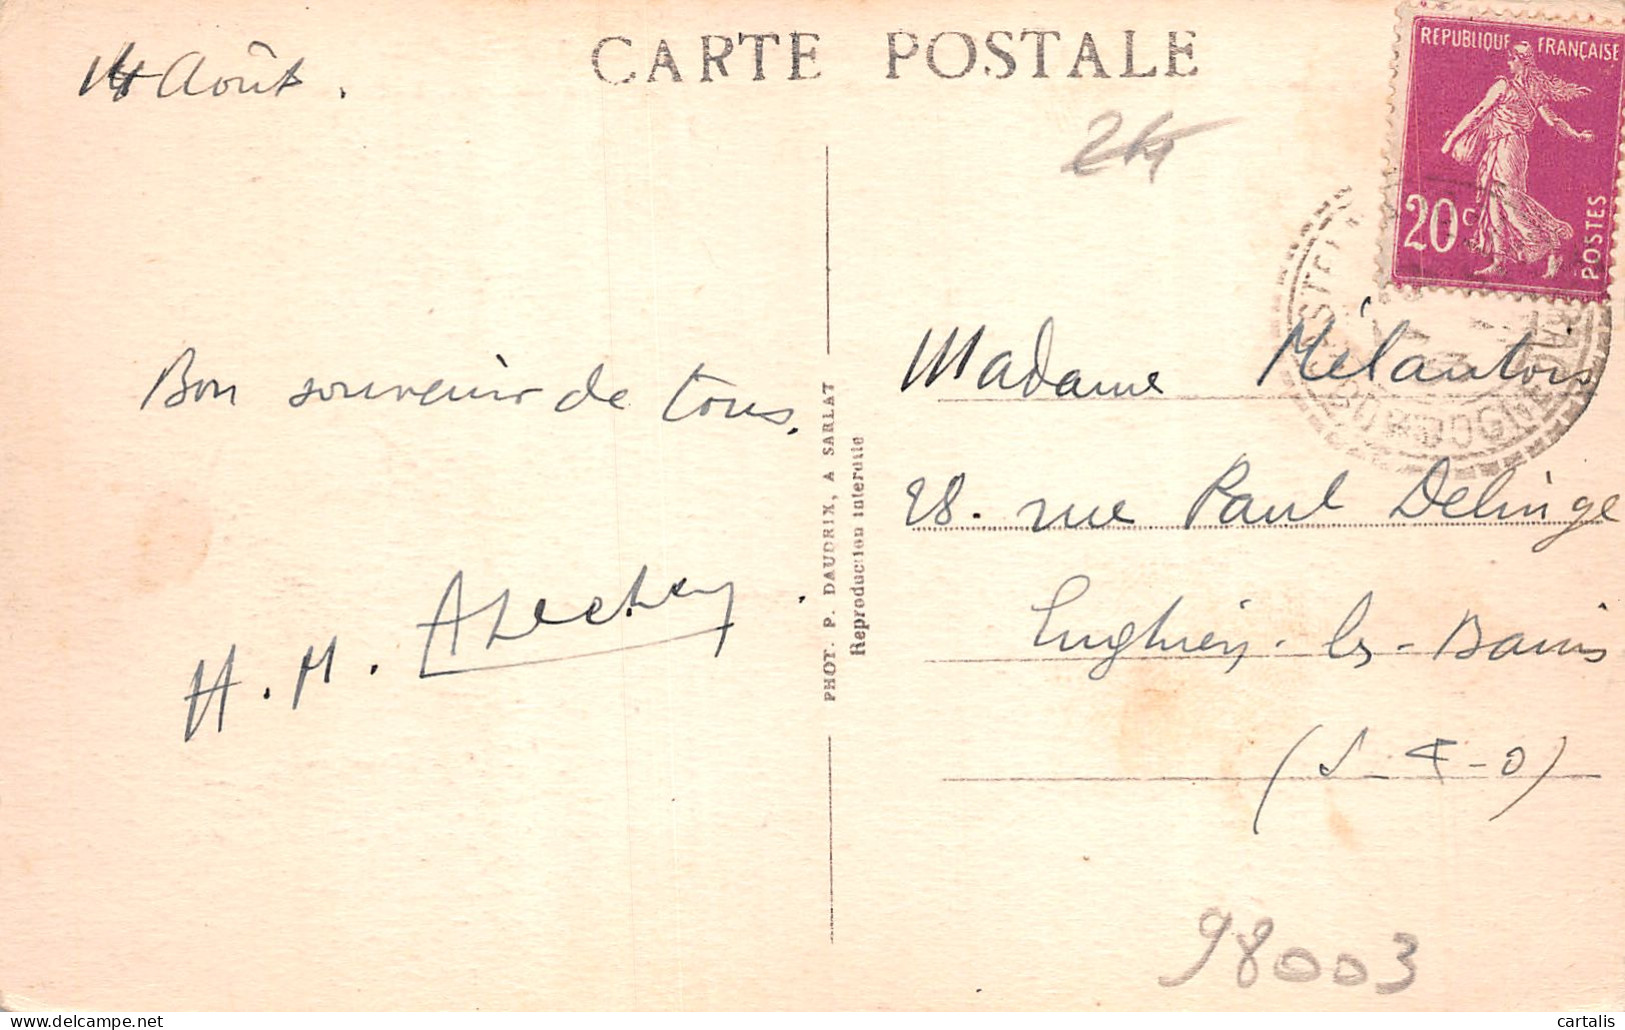 CARTE POSTALE
14 Août.
24
REPUBLIQUE FRANÇAISE
20c
POSTES
Bon souvenir de tous.
H. M.
PHOT. P. DAUDRIX, A SARLAT
Reproduction interdite
Madame Mélantois
28. rue Paul Delinge
Enghien-les-Bains
(S-&-O)
98003
cartalis